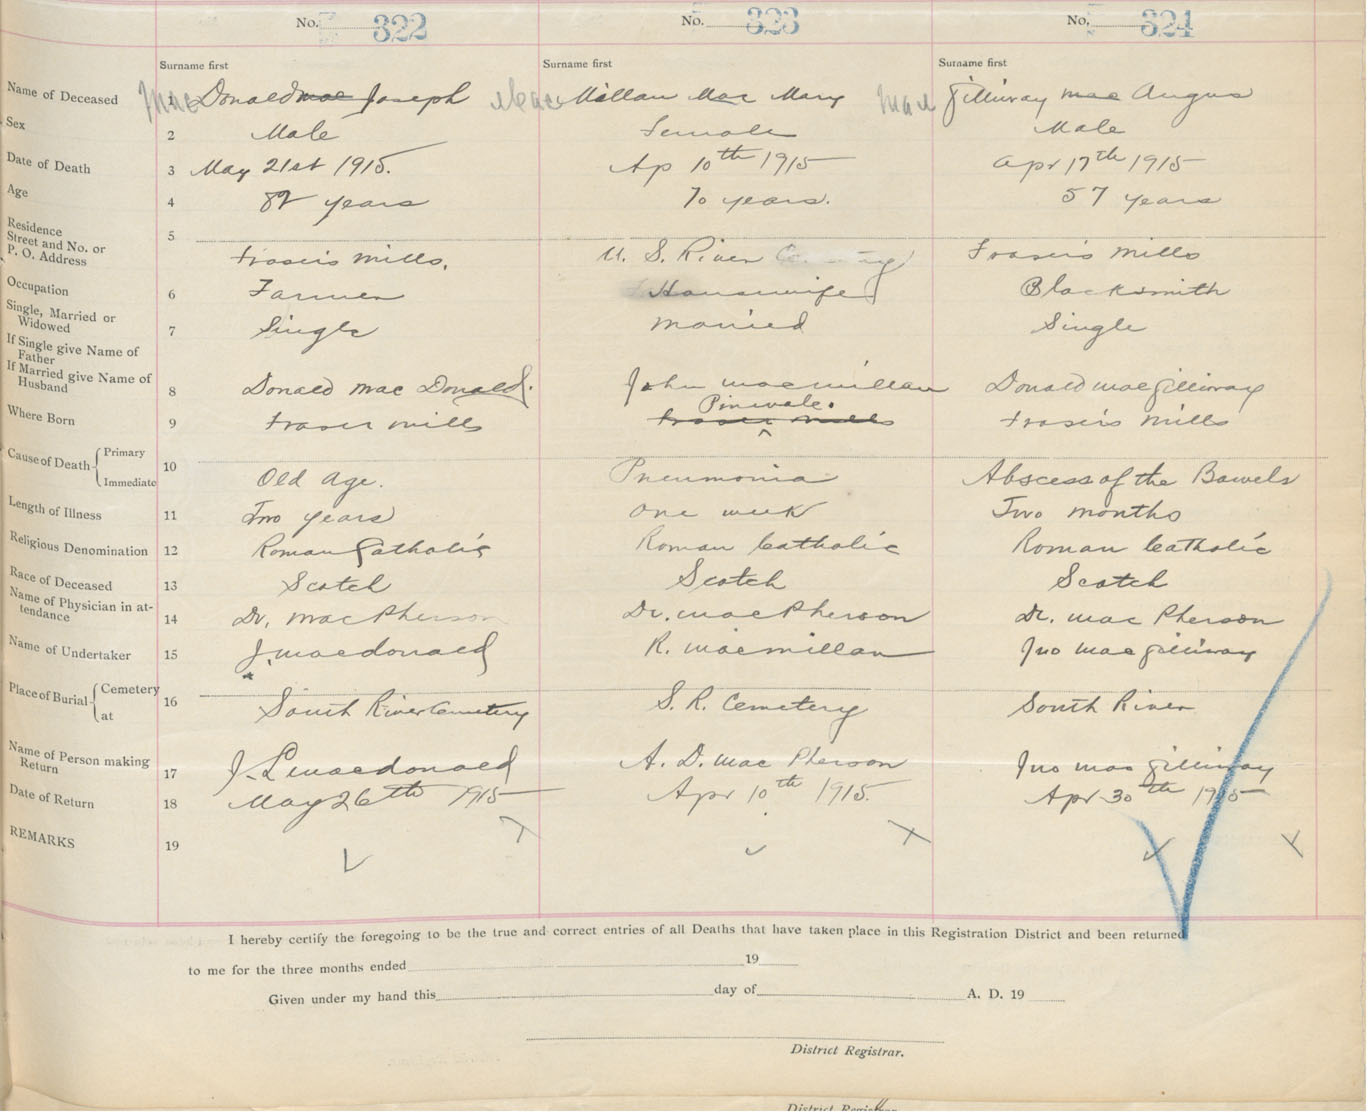 No. 322 No. 323 No. 324
Surname first Surname first Surname first
Name of Deceased 1 Mac Donald mac Joseph Mac Millan Mac Mary Mac Gillivray mac Angus
Sex 2 Male Female Male
Date of Death 3 May 21st 1915. Ap 10th 1915 Apr 17th 1915
Age 4 82 years 70 years. 57 years
Residence
Street and No. or 5
P. O. Address Frasers Mills. U. S. River Frasers Mills
Occupation 6 Farmer Housewife Blacksmith
Single, Married or
Widowed 7 Single Married Single
If Single give Name of
Father
If Married give Name of
Husband 8 Donald Mac Donald. John Macmillan Donald MacGillivray
Pinevale.
Where Born 9 Fraser Mills Fraser Mills Frasers Mills
Cause of Death { Primary Immediate 10 Old Age. Pneumonia Abscess of the Bowels
Length of Illness 11 Two years One week Two months
Religious Denomination 12 Roman Catholic Roman Catholic Roman Catholic
Race of Deceased 13 Scotch Scotch Scotch
Name of Physician in at-
tendance 14 Dr. MacPherson Dr. MacPherson Dr. Mac Pherson
Name of Undertaker 15 J. Macdonald R. Macmillan Jno MacGillivray
Place of Burial { Cemetery at 16 South River Cemetery S. R. Cemetery South River
Name of Person making
Return 17 J. L Macdonald A. D. Mac Pherson Jno Mac Gillivray
Date of Return 18 May 26th 1915 Apr 10th 1915. Apr 30th 1915
REMARKS 19
I hereby certify the foregoing to be the true and correct entries of all Deaths that have taken place in this Registration District and been returned
to me for the three months ended 19
Given under my hand this day of A. D. 19
District Registrar.
District Registrar.